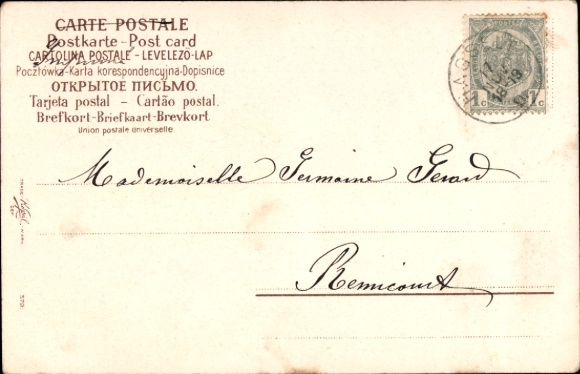 CARTE POSTALE
Postkarte - Post card
Imprimé
CARTOLINA POSTALE - LEVELEZÖ-LAP
Pocztówka-Karta korespondencyjna-Dopisnice
ОТКРЫТОЕ ПИСЬМО.
Tarjeta postal - Cartão postal.
Brefkort-Briefkaart-Brevkort
Union postale universelle.
1 c 1 c
Mademoiselle Germaine Gerard
Remicourt
TRADE MARK
372